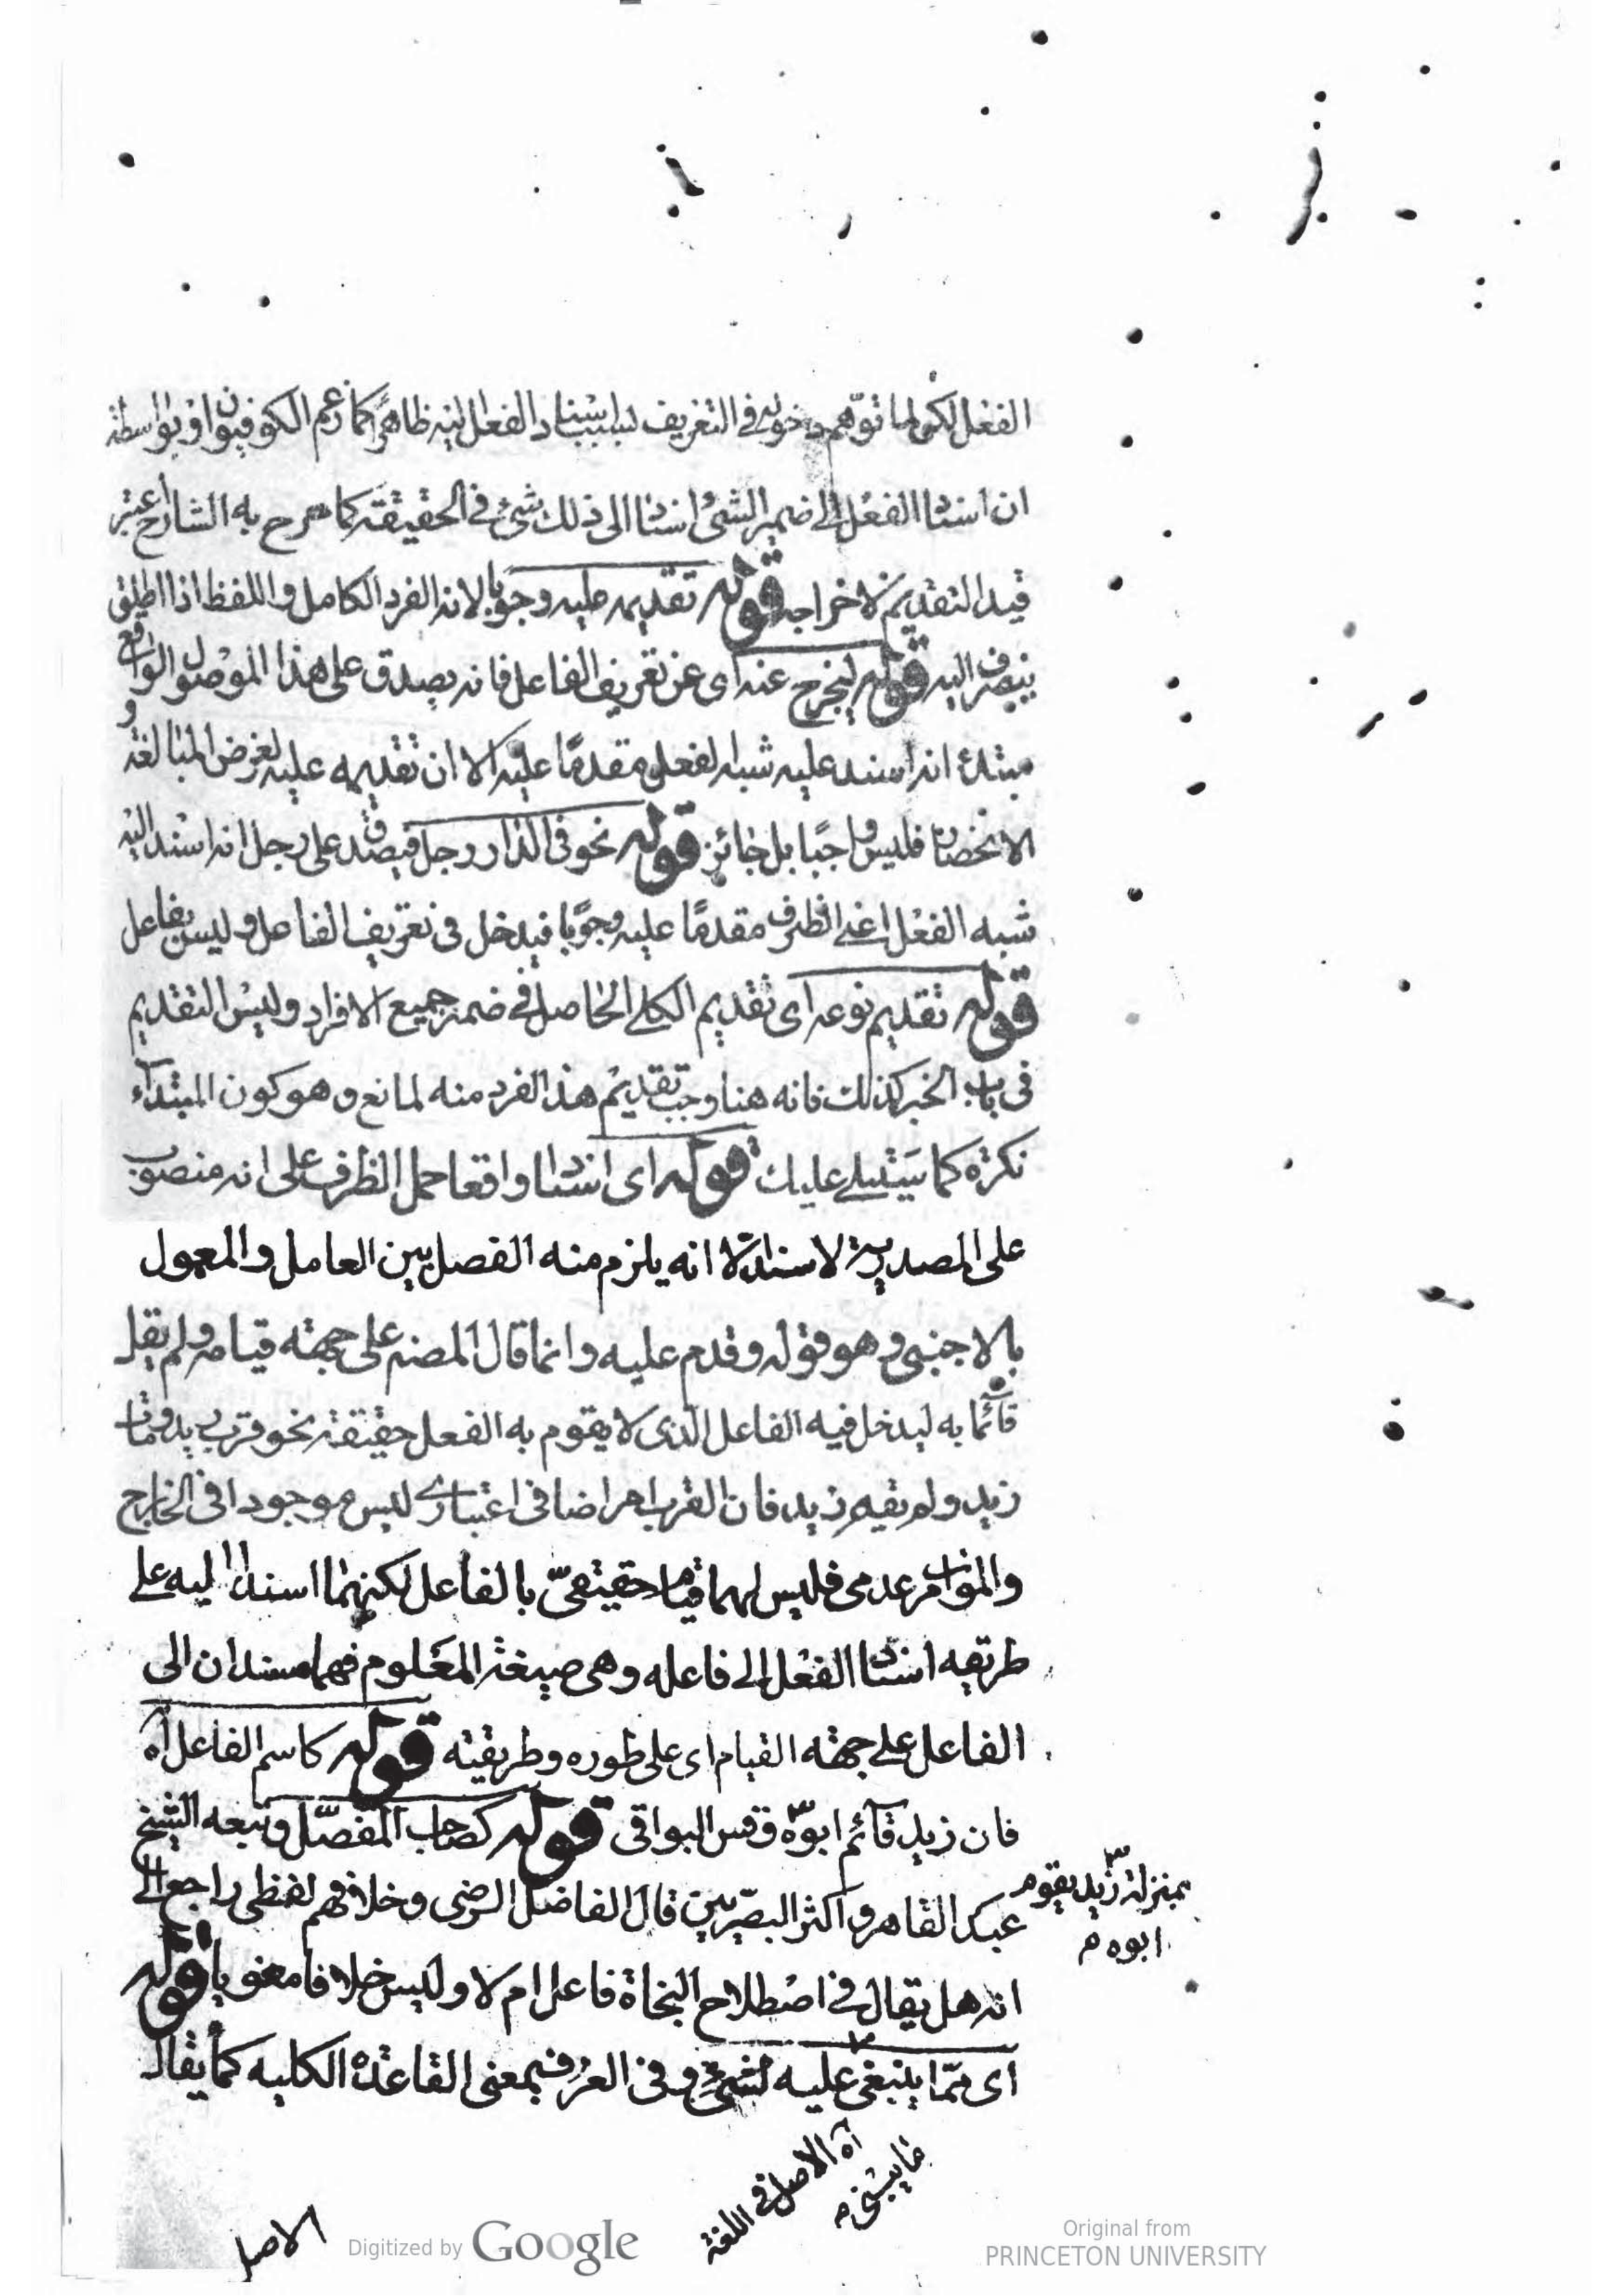 الفعل لكن لما توهم دخوله فى التعريف بسبب اسناد الفعل اليه ظاهرا كما زعم الكوفيون او بواسطة
ان اسناد الفعل الى ضمير الشئ اسناد الى ذلك شئ فى الحقيقة كما صرح به الشارح اعتبر
قيد التقديم لاخراجه قوله تقديمه عليه وجوبا لانه الفرد الكامل واللفظ اذا اطلق
ينصرف اليه قوله ليخرج عنه اى عن تعريف الفاعل فانه يصدق على هذا الموصول الواقع
مبتدئ انه اسند عليه شبه الفعل مقدما عليه الا ان تقديمه عليه لغرض المبالغة و
الانحصار فليس واجبا بل جائز قوله نحو فى الدار رجل فيصدق على رجل انه اسند اليه
شبه الفعل اعنى الظرف مقدما عليه وجوبا فيدخل فى تعريف الفاعل وليس بفاعل
قوله تقديم نوعه اى تقديم الكلى الحاصل فى ضمن جميع الافراد وليس التقديم
فى باب الخبر كذلك فانه هنا وجب تقديم هذا الفرد منه لمانع وهو كون المبتداء
نكرة كما سيتلى عليك قوله اى اسنادا واقعا حمل الظرف على انه منصوب
على المصدرية لاسناد الا انه يلزم منه الفصل بين العامل والمعمول
بالاجنبى وهو قوله وقدم عليه وانما قال المصنف على جهة قيامه ولم يقل
قائما به ليدخل فيه الفاعل الذى لا يقوم به الفعل حقيقة نحو قرب زيد ومات
زيد ولم نقيه زيد فان القرب امر اضافى اعتبارى ليس موجودا فى الخارج
والموات امر عدمى فليس لهما قيام حقيقىّ بالفاعل لكنهما اسندا اليه على
طريقه اسناد الفعل الى فاعله وهى صيغة المعلوم فهما مسندان الى
الفاعل على جهة القيام اى على طوره وطريقته قوله كاسم الفاعل اه
فان زيد قائم ابوه وقس البواقى قوله كصاحب المفصّل وتبعه الشيخ
بمنزلة زيد يقوم
ابوه م
عبد القاهر واكثر البصريين قال الفاضل الرضى وخلافهم لفظى راجع الى
انه هل يقال فى اصطلاح النحاة فاعل ام لا وليس خلافا معنويا قوله
اى ممّا ينبغى عليه لشئ وفى العرف بمعنى القاعدة الكلية كما يقال
اه الاصل فى اللغة
ما يبتنى م
الاصل
Digitized by Google
Original from
PRINCETON UNIVERSITY